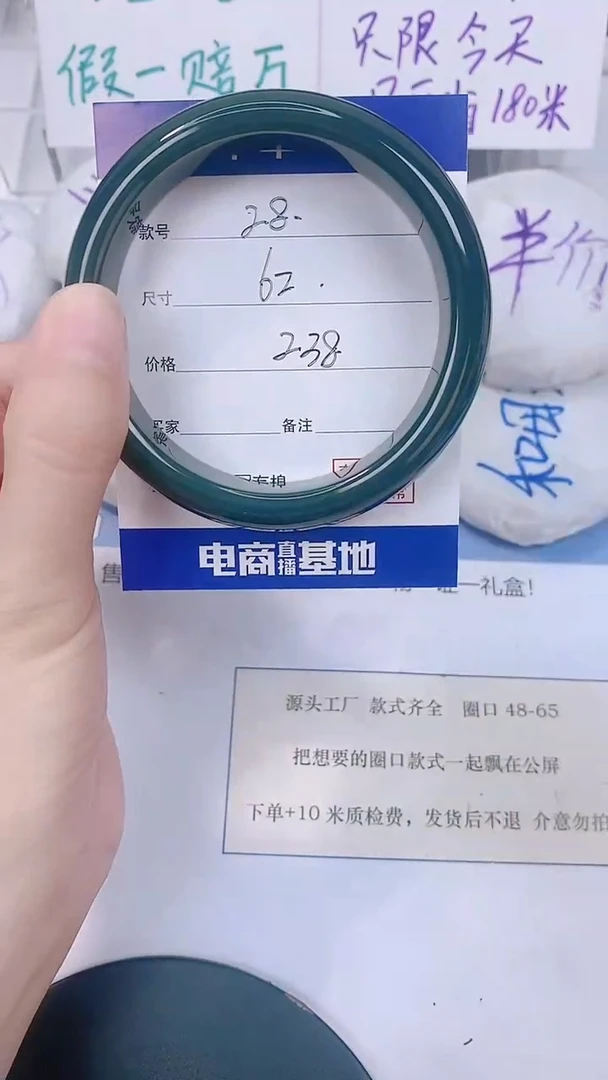 假一赔万
只限今天
180米
款号 28.
尺寸 62.
价格 238
半价
备注
和田
电商直播基地
售
一礼盒!
源头工厂 款式齐全 圈口 48-65
把想要的圈口款式一起飘在公屏
下单+10 米质检费，发货后不退 介意勿拍